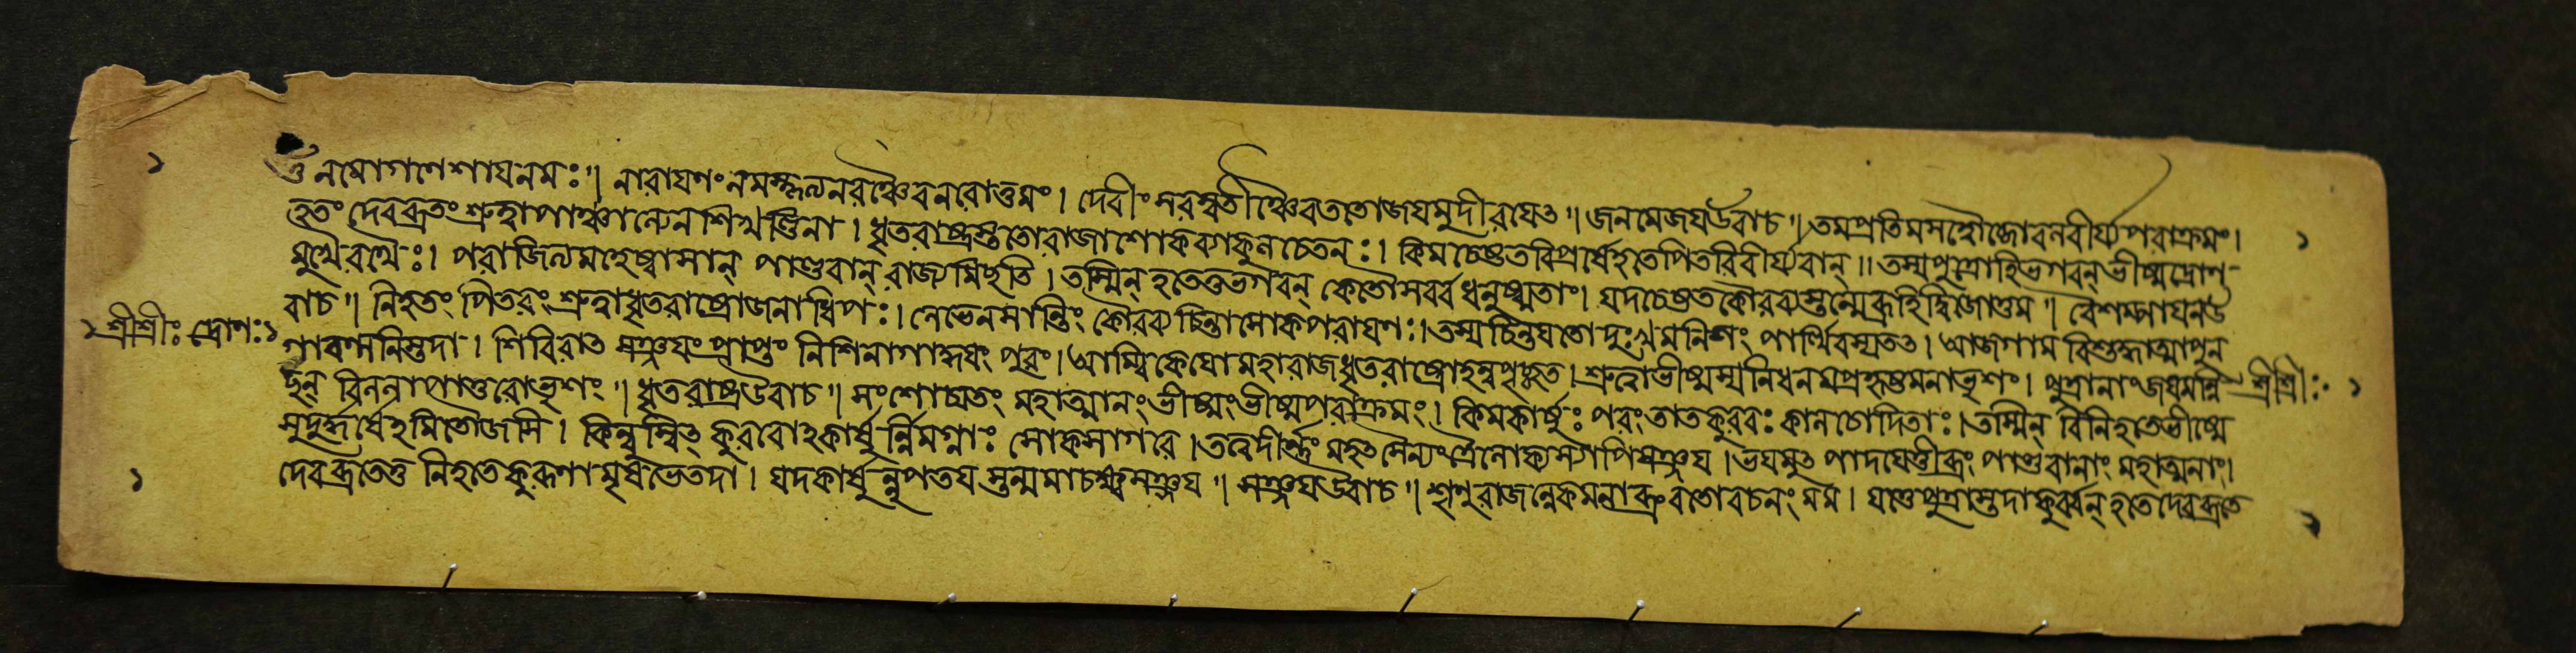 ১
ওঁ নমোগণেশাযনমঃ ॥ নারাযণংনমস্কৃত্যনরঞ্চৈবনরোত্তমং । দেবীংসরস্বতীঞ্চৈবততোজযমুদীরযেৎ ॥ জনমেজযউবাচ ॥ তমপ্রতিমসত্বৌজোবলবীর্য্যপরাক্রমং । ১
হতং দেবব্রতং শ্রুত্বাপাঞ্চাল্যেনশিখণ্ডিনা । ধৃতরাষ্ট্রস্ততোরাজাশোকব্যাকুলচেতনঃ । কিমচেষ্টতবিপ্রর্ষেহতেপিতরিবীর্য্যবান্ ॥ তস্যপুত্রোহিভগবন্ভীষ্মদ্রোণ
মুখৈরথৈঃ । পরাজিত্যমহেষ্বাসান্ পাণ্ডবান্ রাজ্যমিছতি । তস্মিন্ হতেতুভগবন্ কেতৌসর্ব্বধনুষ্মতাং । যদচেষ্টতকৌরব্যস্তন্মেব্রূহিদ্বিজোত্তম ॥ বৈশম্পাযনউ
বাচ ॥ নিহতং পিতরং শ্রুত্বাধৃতরাষ্ট্রোজনাধিপঃ । লেভেনশান্তিং কৌরব্যচিন্তাসোকপরাযণঃ । তস্যচিন্তযতোদুঃখমনিশং পার্থিবস্যতৎ । আজগাম বিশুদ্ধাত্মাপুন
১ শ্রীশ্রীঃ দ্রোণঃ ১ গাবল্গনিস্তদা । শিবিরাৎ সঞ্জযংপ্রাপ্তং নিশিনাগাহ্বযং পুরং । আম্বিকেযোমহারাজধৃতরাষ্ট্রোহন্বপৃচ্ছত । শ্রুত্বাভীষ্মস্যনিধনমপ্রহৃষ্টমনাভৃশং । পুত্রানাংজযমন্বি শ্রীশ্রীঃ ১
ছন্ বিললাপাতুরোভৃশং ॥ ধৃতরাষ্ট্রউবাচ ॥ সংশোচ্যতং মহাত্মানং ভীষ্মংভীষ্মপরাক্রমং । কিমকার্ষুঃ পরংতাতকুরবঃ কালচোদিতাঃ । তস্মিন্ বিনিহতেভীষ্মে
সুদুর্দ্ধর্ষেহমিতৌজসি । কিন্নুস্বিৎ কুরবোহকার্ষুর্ন্নিমগ্নাঃ সোকসাগরে । তদুদীর্ণং মহৎসৈন্যংত্রৈলোক্যস্যাপিসঞ্জয । ভযমুৎপাদযেত্তীব্রং পাণ্ডবানাং মহাত্মনাং ।
১ দেবব্রতেতু নিহতে কুরূণামৃষভেতদা । যদকার্ষুর্নৃপতযস্তন্মমাচক্ষ্বসঞ্জয ॥ সঞ্জযউবাচ ॥ শৃণুরাজন্নেকমনাব্রুবতোবচনংমম । যত্তেপুত্রাস্তদাকুর্ব্বন্ হতেদেবব্রতে ১